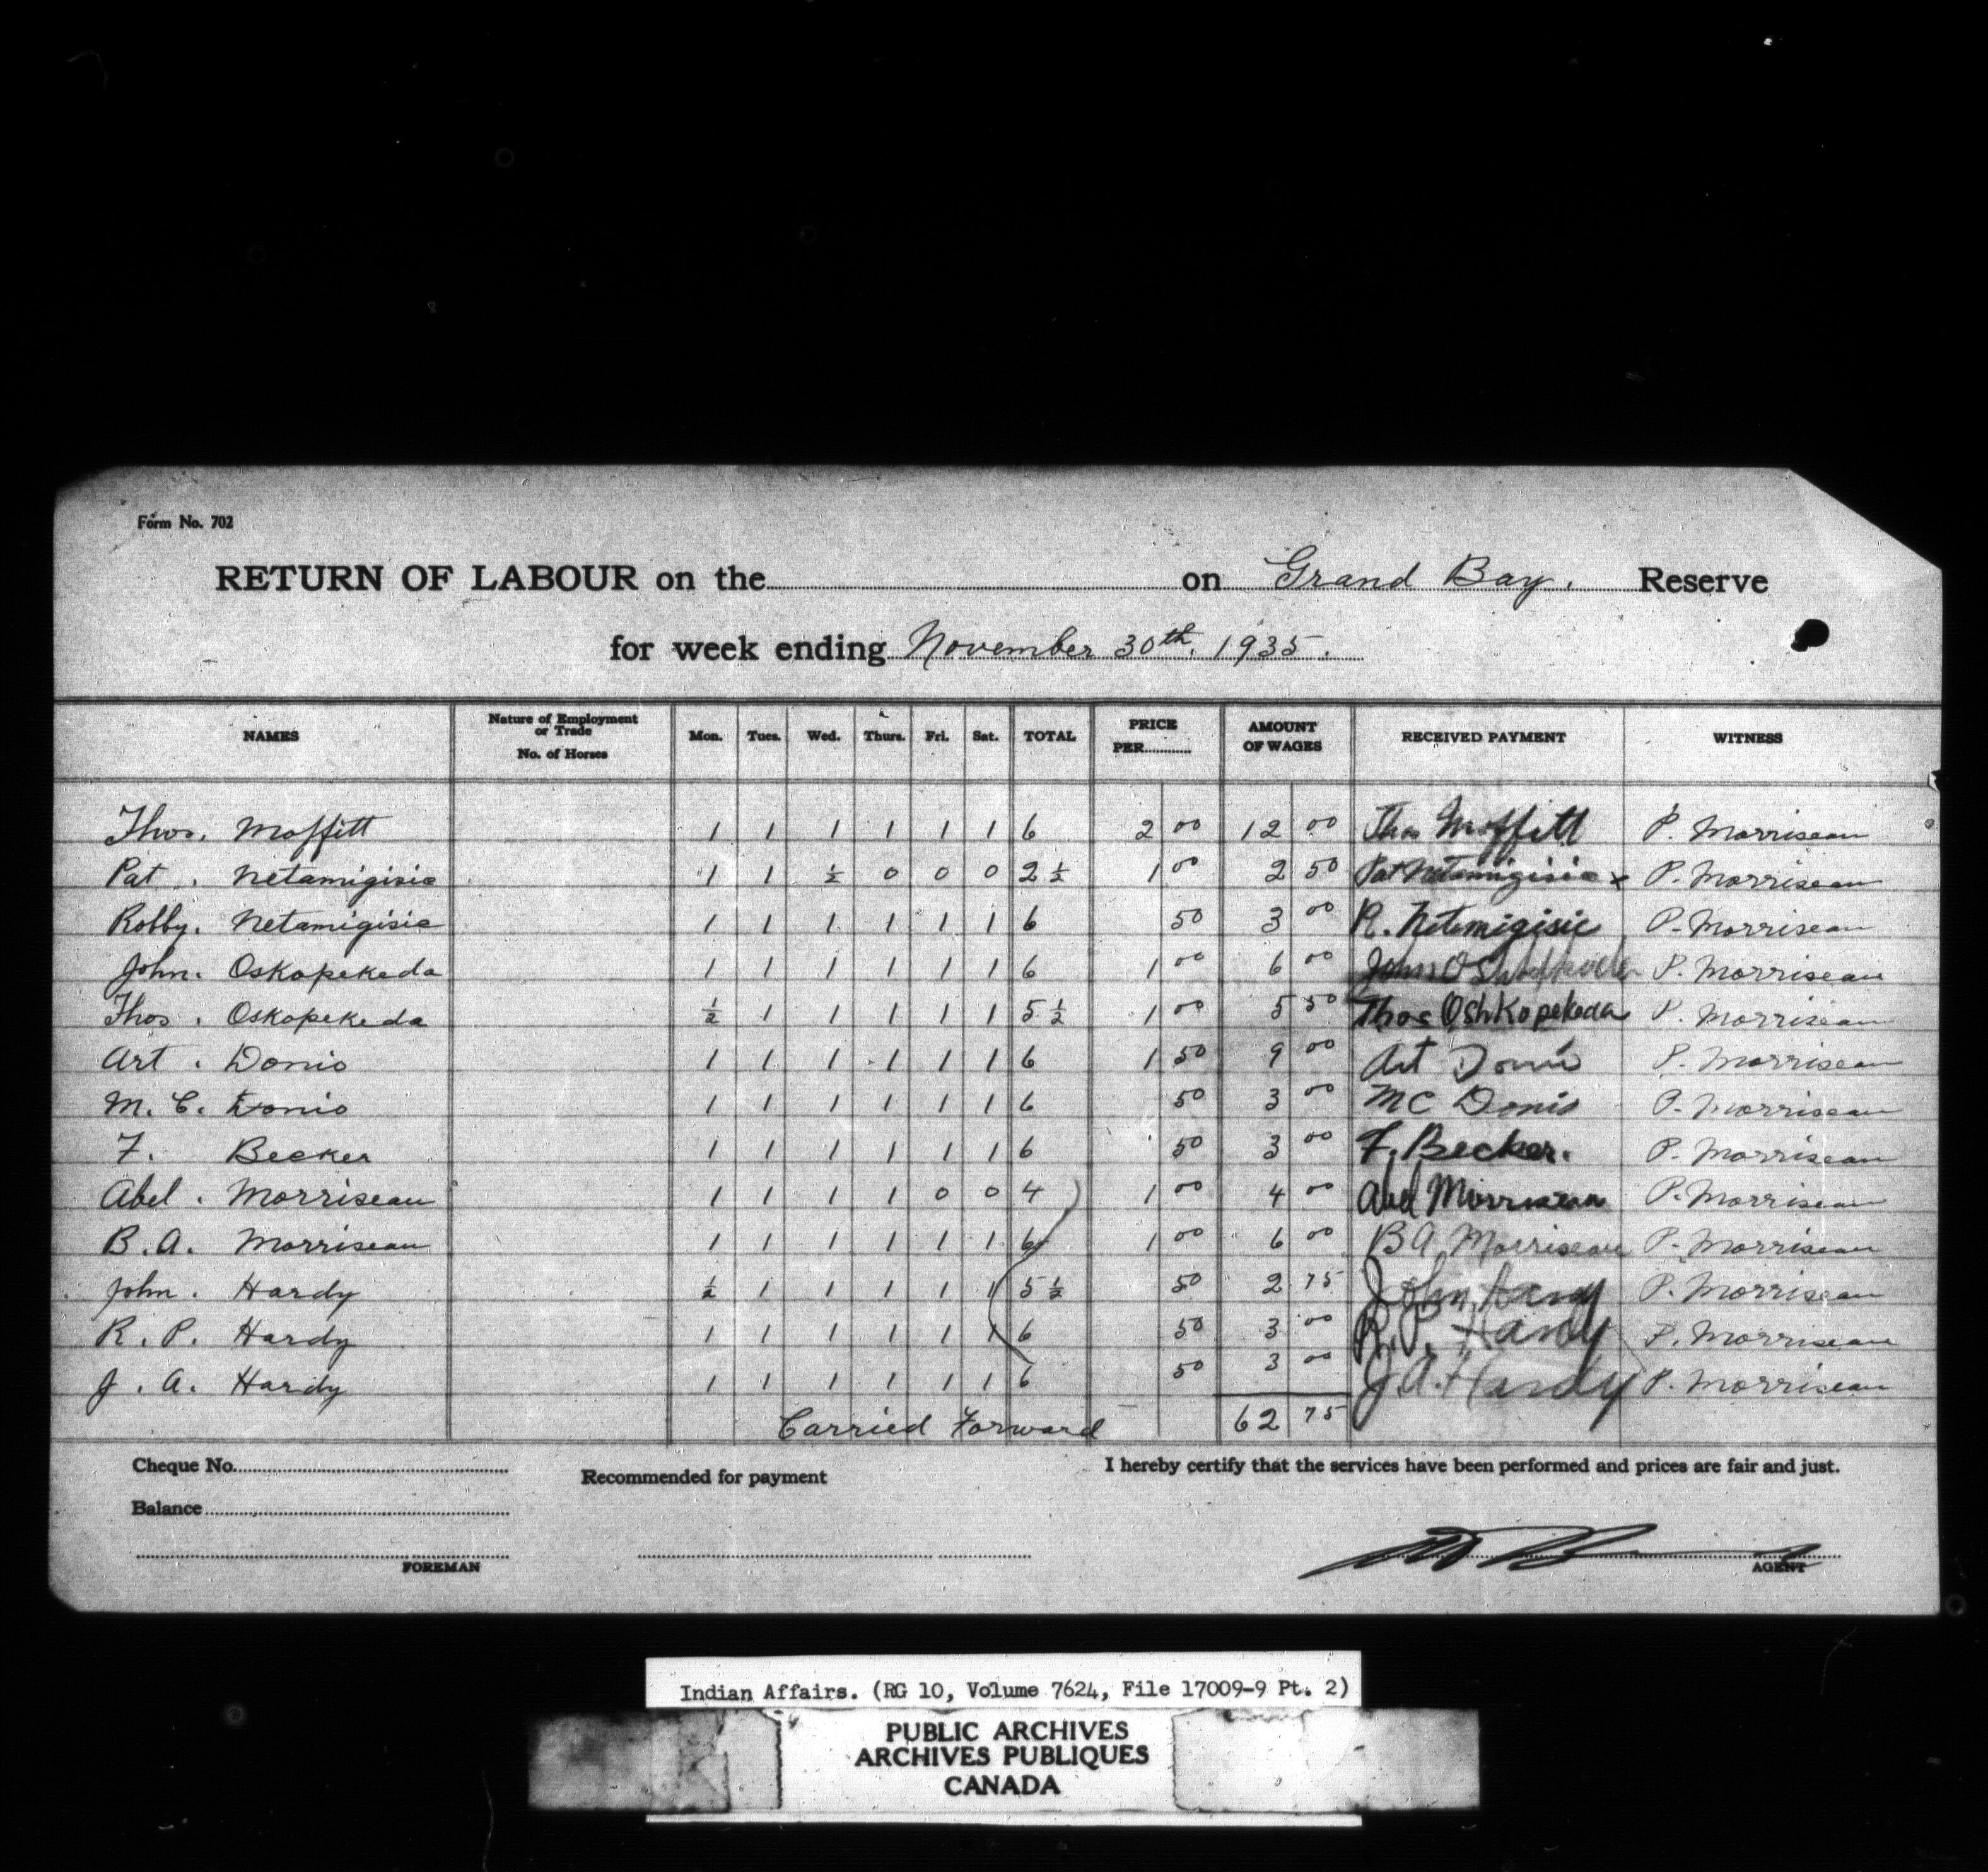 Form No. 702
RETURN OF LABOUR on the on Grand Bay. Reserve
for week ending November 30th. 1935.
NAMES Nature of Employment or Trade No. of Horses Mon. Tues. Wed. Thurs. Fri. Sat. TOTAL PRICE PER AMOUNT OF WAGES RECEIVED PAYMENT WITNESS
Thos. Moffitt 1 1 1 1 1 1 6 2 00 12 00 Thos Moffitt P. Morriseau
Pat. Netamigisic 1 1 ½ 0 0 0 2½ 1 00 2 50 Pat Netamigisic x P. Morriseau
Robby. Netamigisic 1 1 1 1 1 1 6 50 3 00 R. Netemigisic P. Morriseau
John. Oskopekeda 1 1 1 1 1 1 6 1 00 6 00 John P. Morriseau
Thos. Oskopekeda ½ 1 1 1 1 1 5½ 1 00 5 50 Thos Oshkopekeda P. Morriseau
Art. Donio 1 1 1 1 1 1 6 1 50 9 00 Art Donio P. Morriseau
M. C. Donio 1 1 1 1 1 1 6 50 3 00 MC Donio P. Morriseau
F. Becker 1 1 1 1 1 1 6 50 3 00 F. Becker. P. Morriseau
Abel. Morriseau 1 1 1 1 0 0 4 1 00 4 00 Abel Morriseau P. Morriseau
B.A. Morriseau 1 1 1 1 1 1 6 1 00 6 00 BA Morriseau P. Morriseau
John. Hardy ½ 1 1 1 1 1 5½ 50 2 75 John Hardy P. Morriseau
R. P. Hardy 1 1 1 1 1 1 6 50 3 00 R.P. Hardy P. Morriseau
J. A. Hardy 1 1 1 1 1 1 6 50 3 00 J.A. Hardy P. Morriseau
Carried Forward 62 75
Cheque No. Recommended for payment I hereby certify that the services have been performed and prices are fair and just.
Balance
FOREMAN AGENT
Indian Affairs. (RG 10, Volume 7624, File 17009-9 Pt. 2)
PUBLIC ARCHIVES
ARCHIVES PUBLIQUES
CANADA